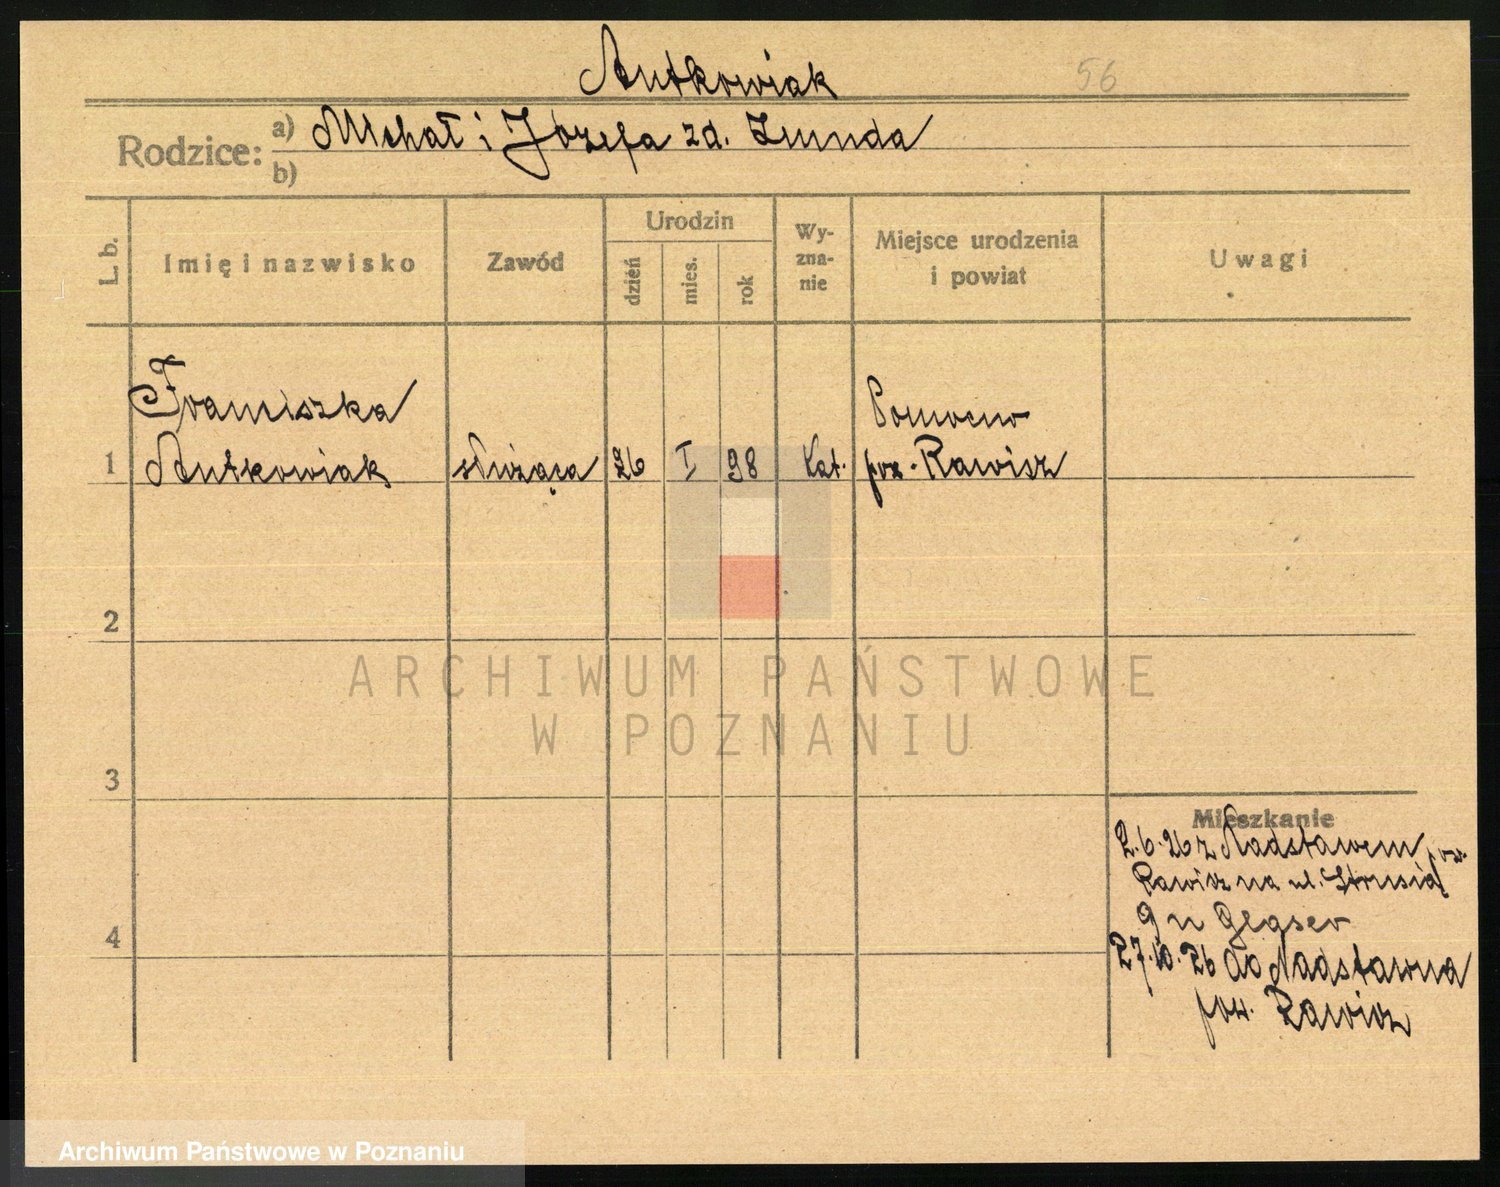 Antkowiak
56
Rodzice: a) Michał i Józefa zd. Zmuda
b)
L. b. Imię i nazwisko Zawód Urodzin dzień mies. rok Wyzna-nie Miejsce urodzenia i powiat Uwagi
Franciszka
1 Antkowiak służąca 26 I 98 kat. pow. Rawicz
2
ARCHIWUM PAŃSTWOWE
W POZNANIU
3
Mieszkanie
2.6.26 z Nadstawem pow.
Rawicz na ul. Strusia
9 u Glaser
4
27.10.26 do Nadstawna
pow. Rawicz
Archiwum Państwowe w Poznaniu